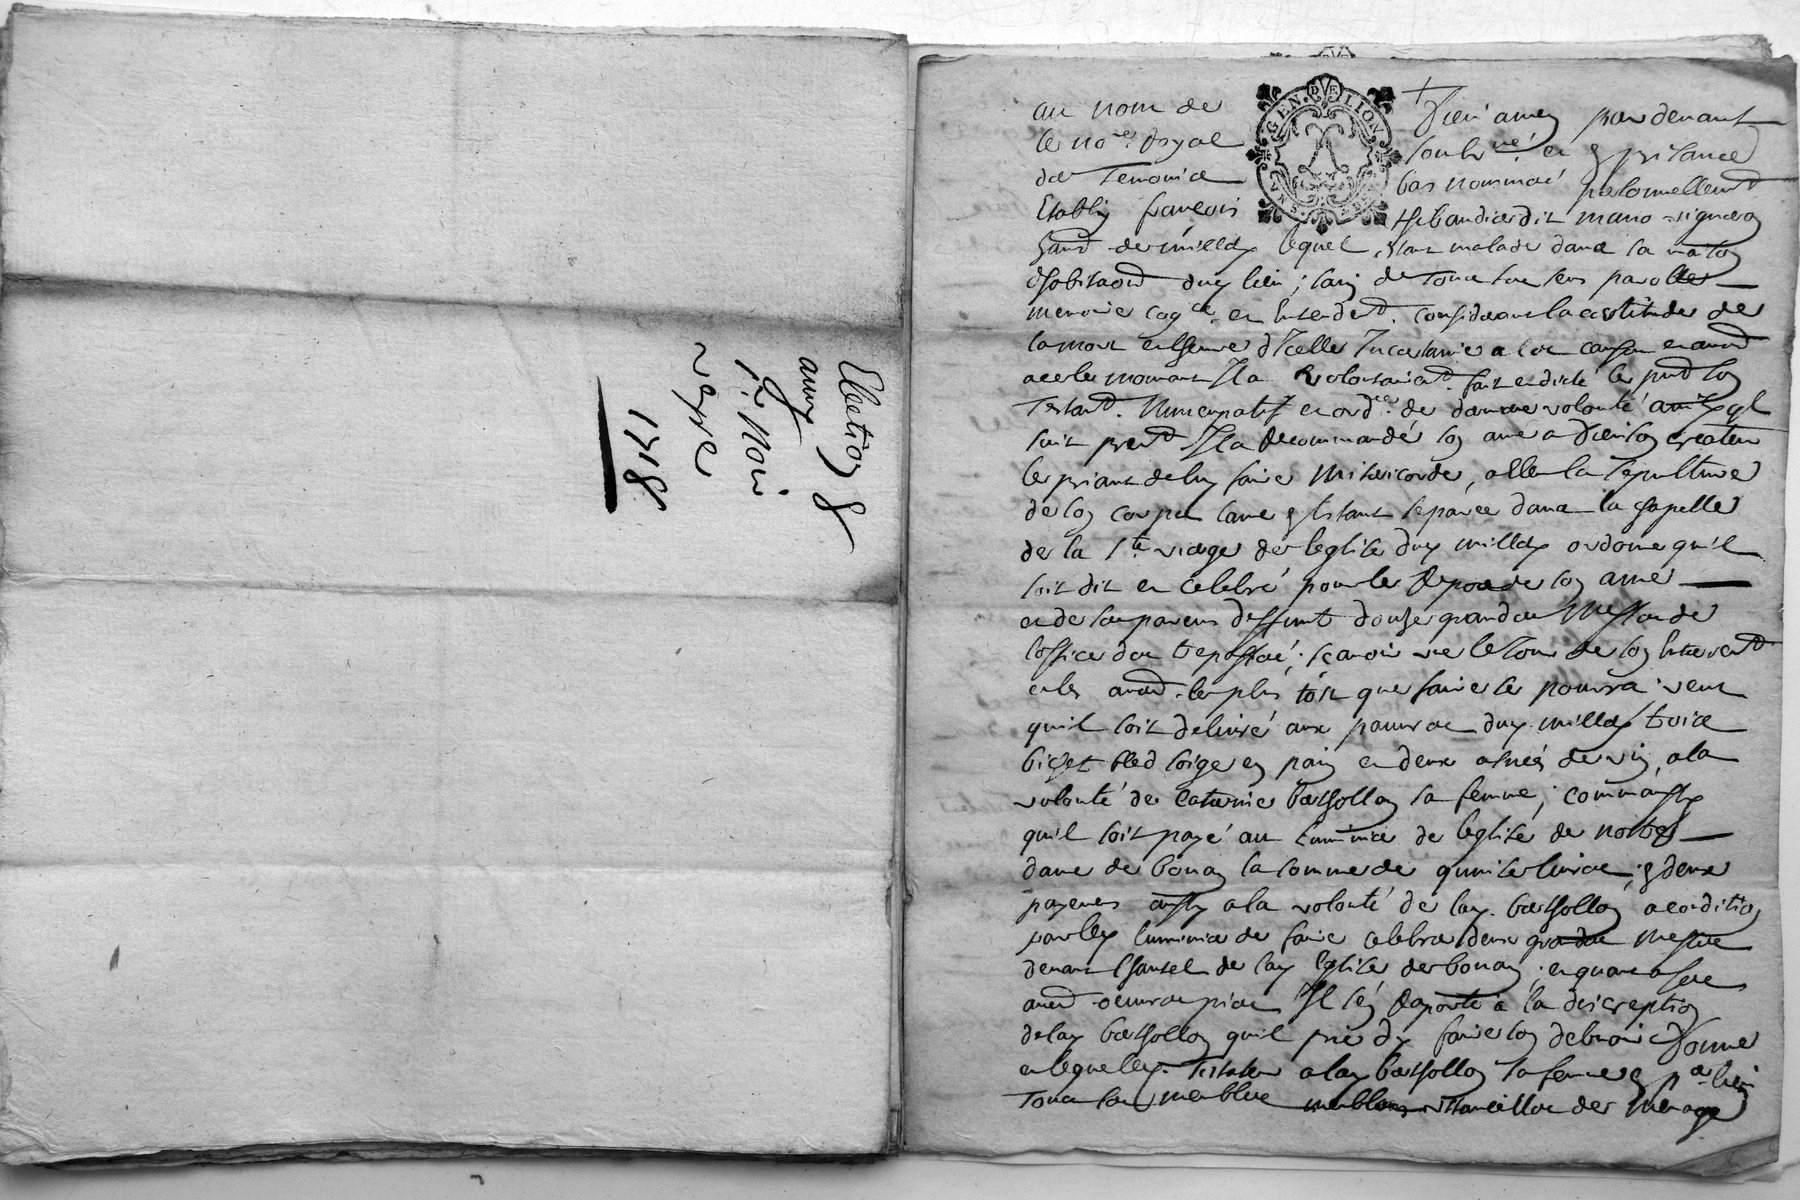 Election
amy &
Noir
1718
GEN. DE LION
au nom de Dieu amen par devant
le no.re Royal soubs.né en p̃ñsance
des Temoins bas nommés personnellem.t
Etably françois Thibaudier dit mano vigneron
hant de millery lequel estant malade dans sa maison
d'habitaon dud lieu ; sain de tous ses sens parolle
memoire cog.ce et entendem.t considerant la certitude de
la mort et l'heure d'Icelle Incertaine a ces causes et autres
a ce les mouvant Il a volontairem.t fait et dicté le p.nt son
Testam.t Nuncupatif et ord.ce de derniere volonté ainsy q'l
suit prem.t Il a Recommandé son ame a Dieu son createur
le priant de luy faire Misericorde, Esleu la sepulture
de son corps l'ame estant separée dans la chapelle
de la S.te vierge de leglise dud millery ordonne qu'il
soit dit et celebré pour le Repos de son ame
et de ses parens deffunt douze grandes Messes de
loffice des trepassés ; sçavoir le Jour de son Enterrem.t
et les autres le plus tost que faire se pourra veut
quil soit delivré aux pauvres dud millery trois
bichet bled soige en pain et deux asnées de vin, a la
volonté de caterine berthollon sa femme ; comme aussy
quil soit payé au luminier de leglise de nostre
dame de bonan la somme de quinze livres, en deux
payemens aussy a la volonté de lad. berthollon a condition
par led luminier de faire celebrer deux grandes messes
devant lhautel de lad Eglise de bonan ; et quant a ses
autres oeuvres pies Il s'en Raporte a la discreption
de lad berthollon quil prie d'y faire son debvoir Donne
et legue led. Testateur a lad berthollon sa femme
Tous ses meubles meublans ustancilles de menage